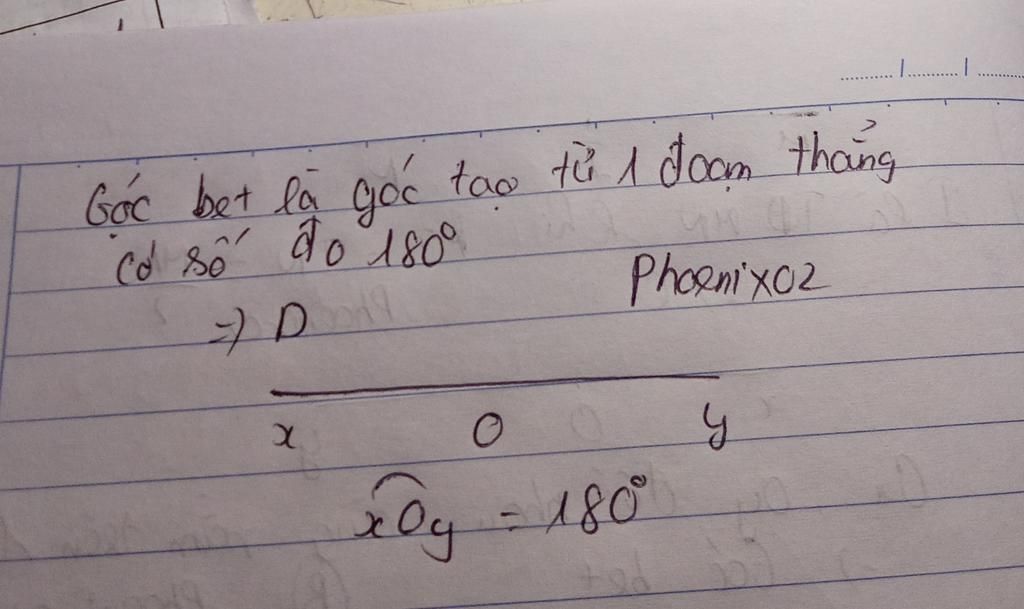 Góc bet là góc tạo từ 1 đoạn thẳng
có số đo 180°
=) D
Phoenix02
x O y
xOy = 180°